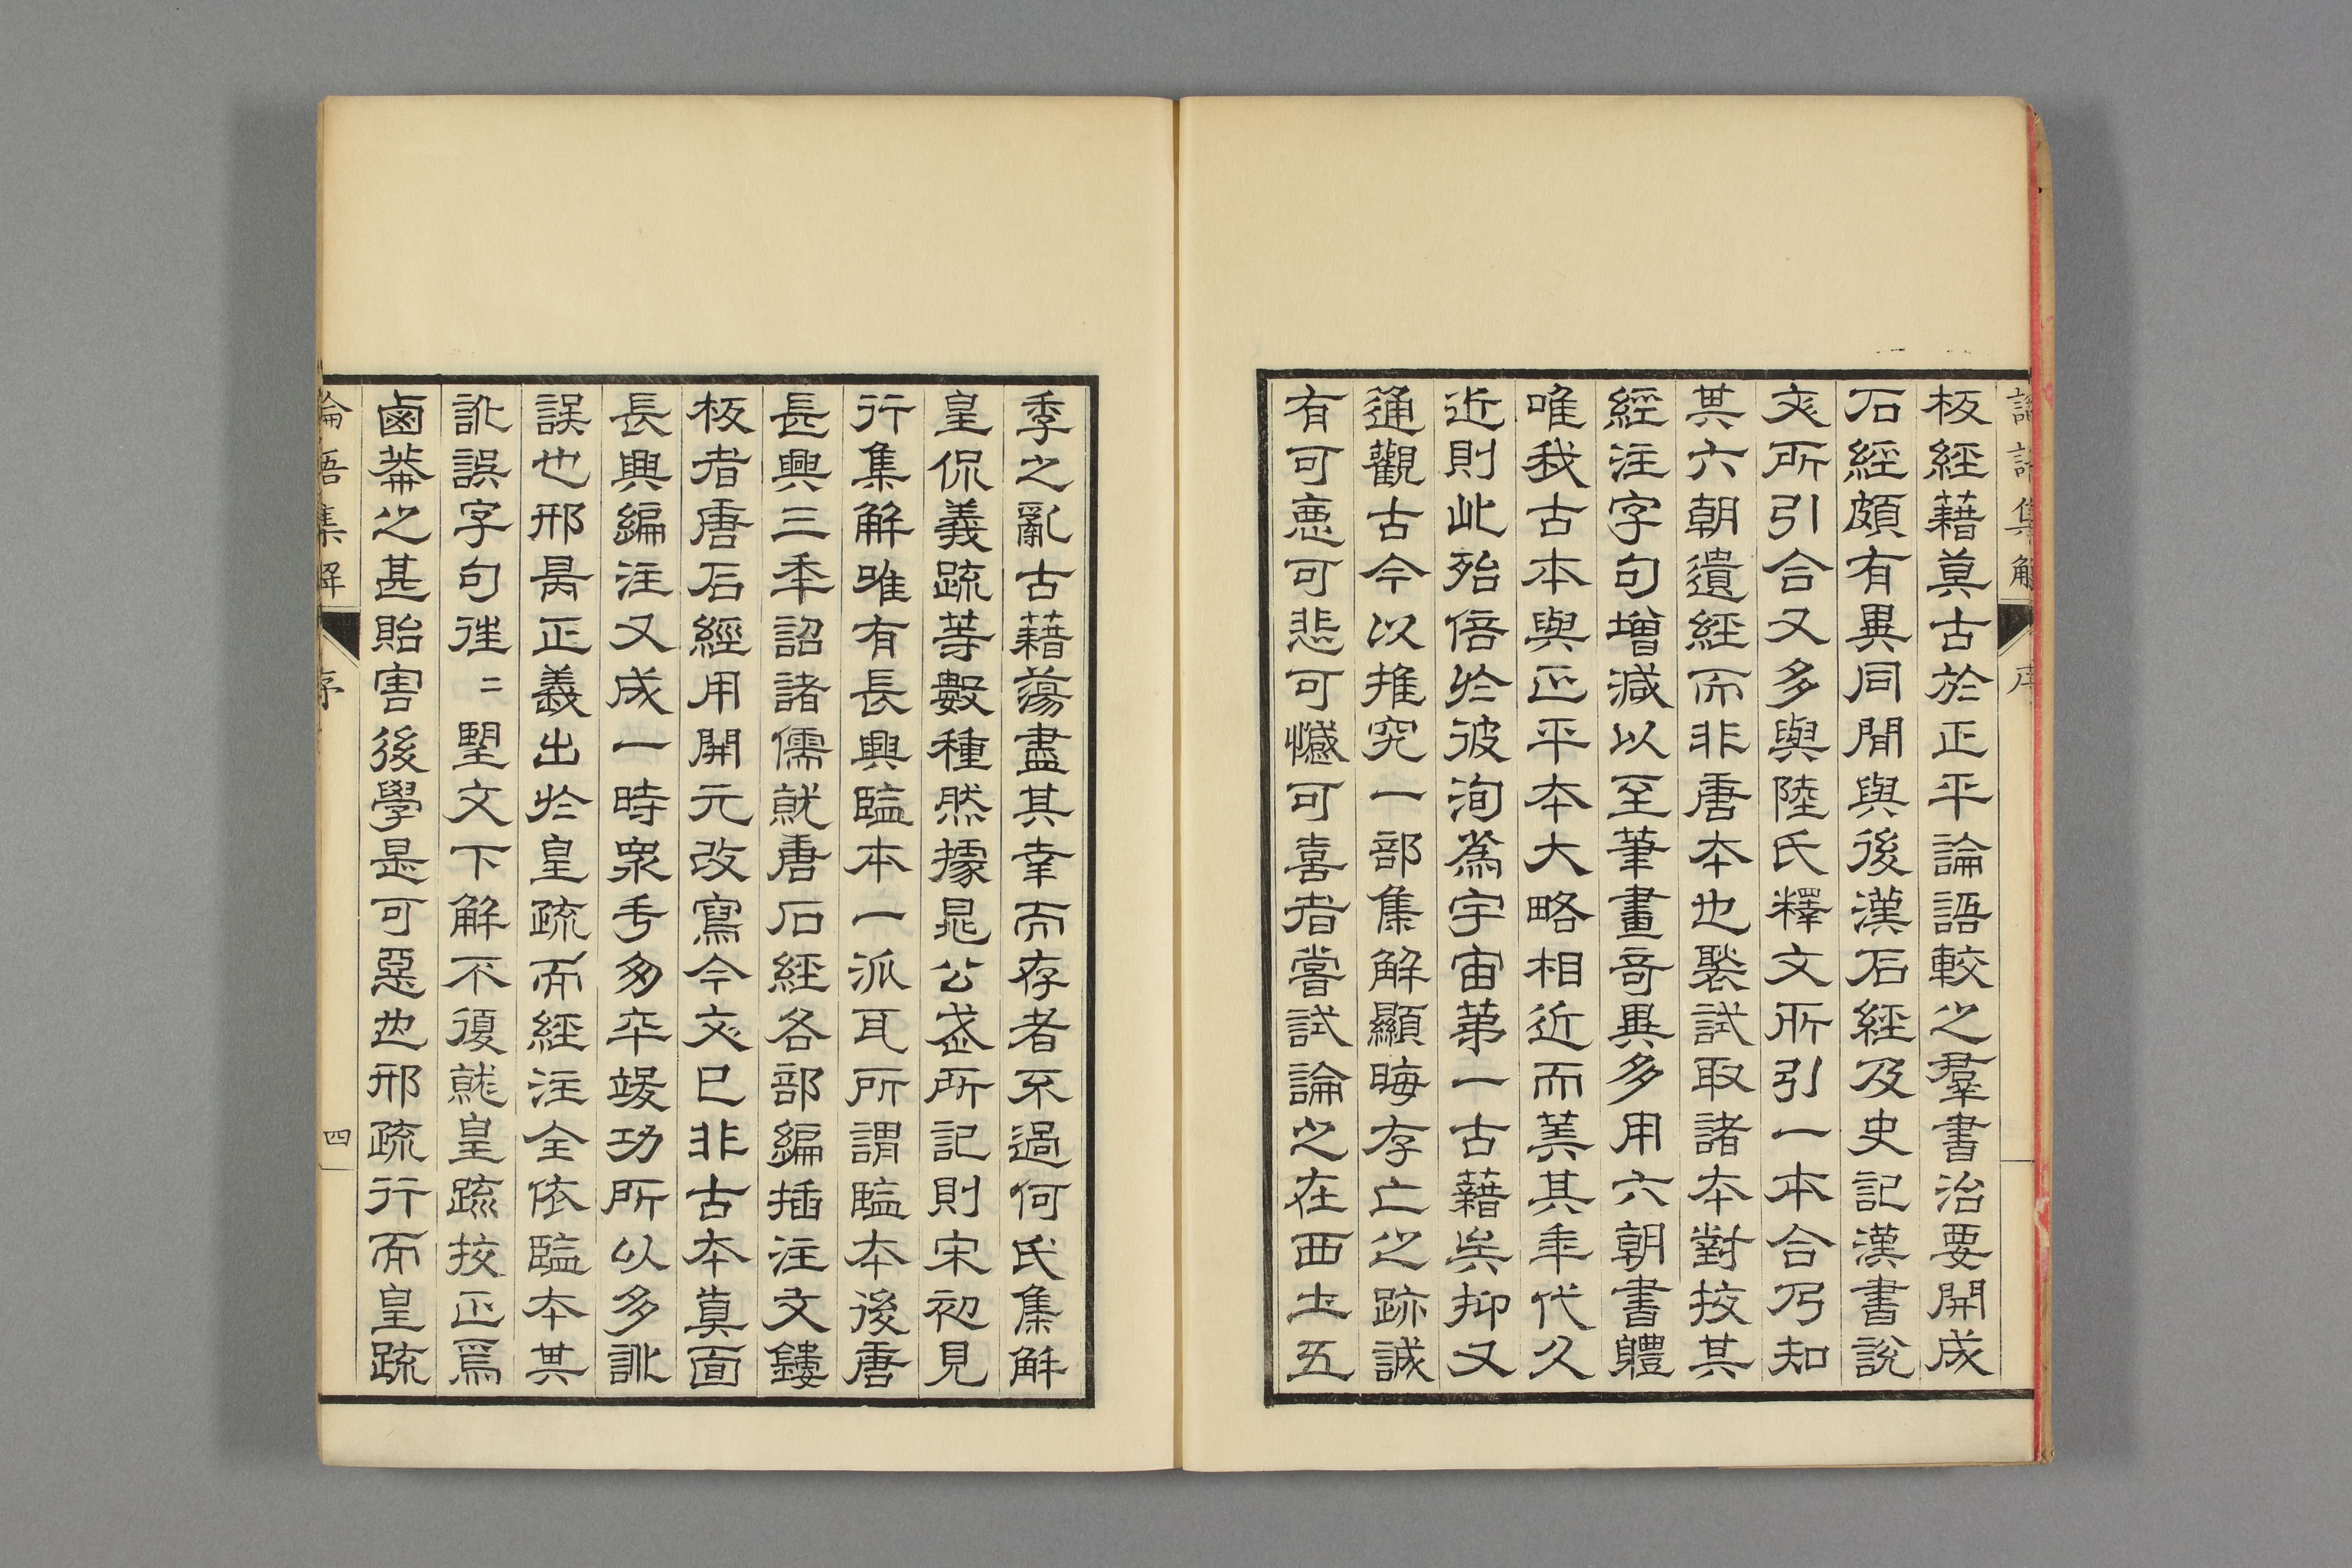 論語集解 序
板經藉莫古於正平論語較之羣書治要開成
石經頗有異同間與後漢石經及史記漢書說
文所引合又多與陸氏釋文所引一本合乃知
其六朝遺經而非唐本也褧試取諸本對挍其
經注字句增減以至筆畫奇異多用六朝書軆
唯我古本與正平本大略相近而其年代久
近則此殆倍於彼洵為宇宙第一古藉矣抑又
通觀古今以推究一部集解顯晦存亡之跡誠
有可恵可悲可憾可喜者嘗試論之在西土五
季之亂古藉蕩盡其幸而存者不過何氏集解
皇侃義疏等數種然據晁公武所記則宋初見
行集解唯有長興監本一派耳所謂監本後唐
長興三年詔諸儒就唐石經各部編插注文鏤
板者唐石經用開元改寫今文已非古本真面
長興編注又成一時衆手匆卒竣功所以多訛
誤也邢昺正義出於皇疏而經注全依監本其
訛誤字句往〻望文下解不復就皇疏挍正爲
鹵莽之甚貽害後學是可惡也邢疏行而皇疏
論語集解 序 四